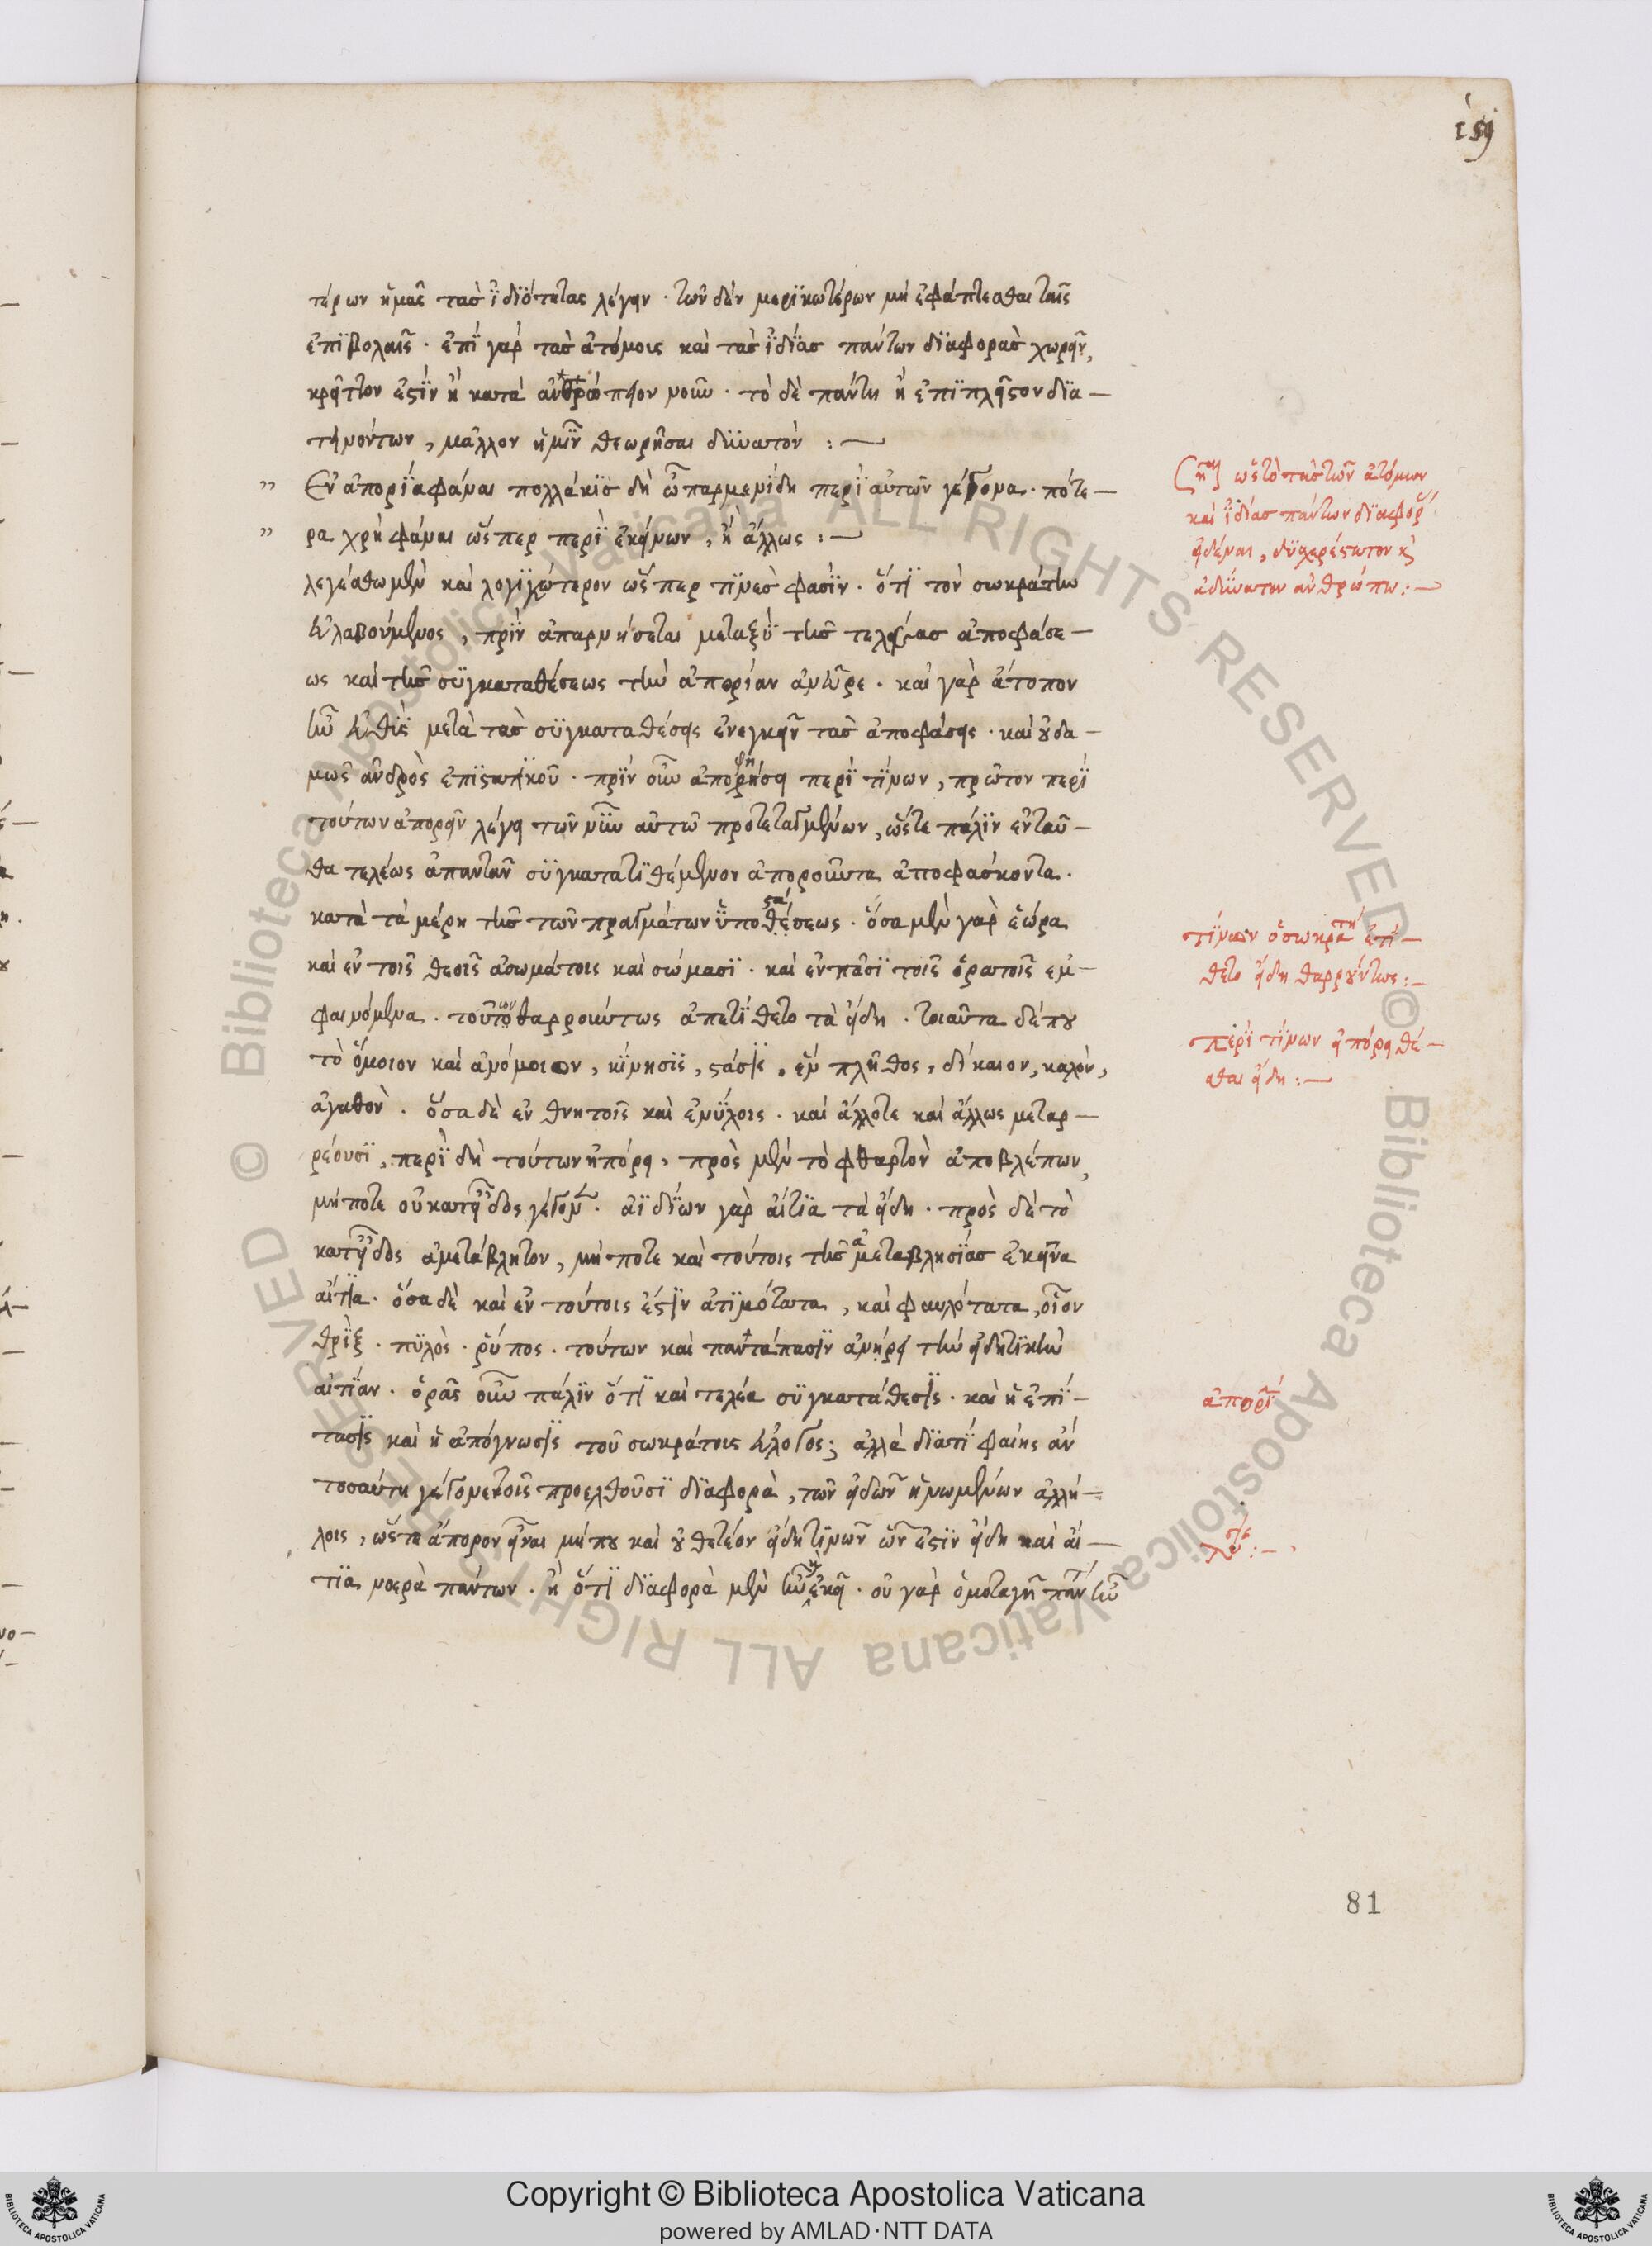 τέρων ἡμᾶς τὰς ἰδιότητας λέγειν · τῶν δέν μερικωτέρων μὴ ἐφάπτεσθαι ταῖς
ἐπιβολαῖς · ἐπὶ γὰρ τὰς ἀτόμοις καὶ τὰς ἰδίας πάντων διαφορὰς χωρεῖν,
κρεῖττον ἐστὶν ἢ κατὰ ἀνθρώπειον νοῦν · τὸ δὲ πάντη ἢ ἐπιπλεῖστον δια-
τεινόντων, μᾶλλον ἡμῖν θεωρῆσαι δυνατόν :-
" Ἐν ἀπορίᾳ φάναι πολλάκις δὴ ὦ παρμενίδη περὶ αὐτῶν γέγονα · πότε-
" ρα χρὴ φάναι ὥσπερ περὶ ἐκείνων, ἢ ἄλλως :-
λεγέσθω μὲν καὶ λογικώτερον ὥσπερ τινὲς φασὶν · ὅτι τὸν σωκράτην
εὐλαβούμενος, πρὶν ἀπαρνήσεται μεταξὺ τῆς τελείας ἀποφάσε-
ως καὶ τῆς συγκαταθέσεως τὴν ἀπορίαν ἀνεῦρε · καὶ γὰρ ἄτοπον
ἦν εὐθὺς μετὰ τὰς συγκαταθέσεις ἐνεγκεῖν τὰς ἀποφάσεις · καὶ οὐδα-
μῶς ἀνδρὸς ἐπιστατικοῦ · πρὶν οὖν ἀπορήσει περὶ τίνων, πρῶτον περὶ
τούτων ἀπορεῖν λέγει τῶν νῦν αὐτῶ προτεταγμένων, ὥστε πάλιν ἐνταῦ-
θα τελέως ἀπαντᾶν συγκατατιθέμενον ἀποροῦντα ἀποφάσκοντα.
κατὰ τὰ μέρη τῆς τῶν πραγμάτων ὑποθέσεως · ὅσα μὲν γὰρ ἑώρα
καὶ ἐν τοῖς θεοῖς ἀσωμάτοις καὶ σώμασι · καὶ ἐν πᾶσι τοῖς ὁρατοῖς ἐμ-
φαινόμενα · τούτων θαρρούντως ἀπετίθετο τὰ εἴδη · τοιαῦτα δέ που
τὸ ὅμοιον καὶ ἀνόμοιον, κίνησις, στάσις, ἓν πλῆθος, δίκαιον, καλόν,
ἀγαθὸν · ὅσα δὲ ἐν θνητοῖς καὶ ἐνύλοις · καὶ ἄλλοτε καὶ ἄλλως μεταρ-
ρέουσι, περὶ δὴ τούτων ἠπόρει, πρὸς μὲν τὸ φθαρτὸν ἀποβλέπων,
μήποτε οὐ κατ' εἶδος γέγον · ἀϊδίων γὰρ αἴτια τὰ εἴδη · πρὸς δὲ τὸ
κατ' εἶδος ἀμετάβλητον, μή ποτε καὶ τούτοις τῆς ἀμεταβλησίας ἐκεῖνα
αἴτια · ὅσα δὲ καὶ ἐν τούτοις ἐστὶν ἀτιμότατα, καὶ φαυλότατα, οἷον
θρὶξ · πυλὸς · ῥύπος · τούτων καὶ παντάπασιν ἀνῄρει τὴν εἰδητικὴν
αἰτίαν · ὁρᾶς οὖν πάλιν ὅτι καὶ τελέα συγκατάθεσις · καὶ ἡ ἐπί-
τασις καὶ ἡ ἀπόγνωσις τοῦ σωκράτους εὔλογος; ἀλλὰ διατί φαίης ἂν
τοσαύτη γέγονε τοῖς προελθοῦσι διαφορὰ, τῶν εἰδῶν ἡνωμένων ἀλλή-
λοις, ὥστε ἄπορον εἶναι μή που καὶ οὐ θετέον εἴδη τινῶν ὧν ἐστὶν εἴδη καὶ αἰ-
τία νοερὰ πάντων · ἢ ὅτι διαφορὰ μὲν ἦν κἀκεῖ · οὐ γὰρ ὁμοταγῆ πάντ' ἦν
ὡς τὸ τὰς τῶν ἀτόμων
καὶ ἰδίας πάντων διαφορ
εἰδέναι, δυχερέστατον κ
ἀδύνατον ἀνθρώπω :-
τίνων ὁ σωκράτη ἐτί-
θετο εἴδη θαρρούντως :-
περὶ τίνων ἠπόρει θέ-
σθαι εἴδη :-
ἀπορί
λύσις :-
81
© Biblioteca Apostolica Vaticana ALL RIGHTS RESERVED © Biblioteca Apostolica Vaticana ALL RIGHTS RESERVED
Copyright © Biblioteca Apostolica Vaticana
powered by AMLAD·NTT DATA